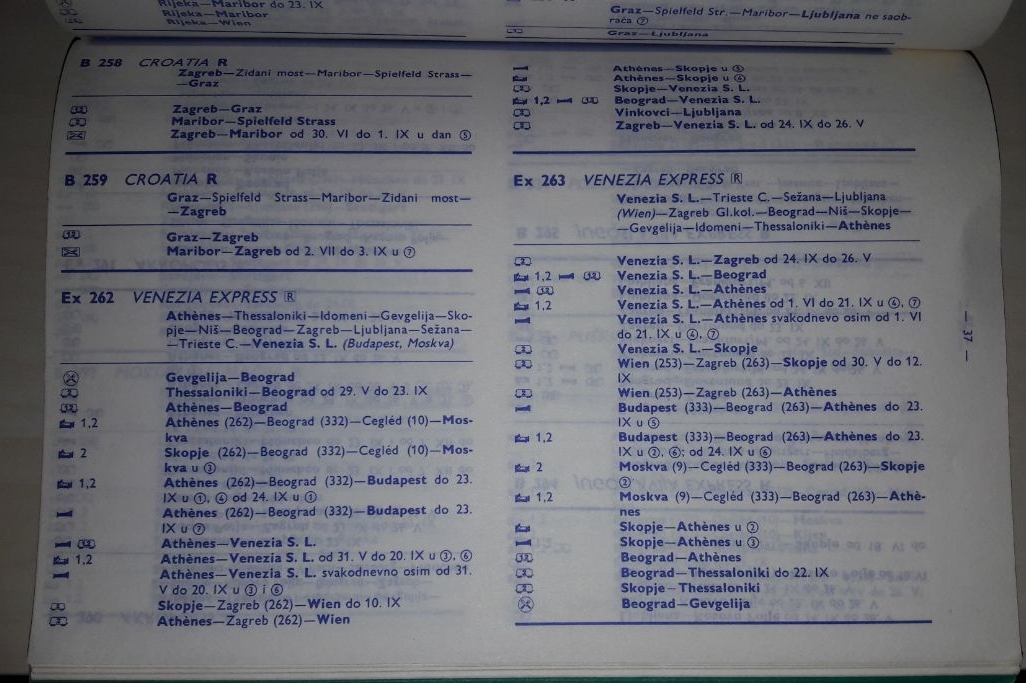 Rijeka—Maribor do 23. IX
Rijeka—Maribor
Rijeka—Wien
B 258 CROATIA R
Zagreb—Zidani most—Maribor—Spielfeld Strass—
—Graz
Zagreb—Graz
Maribor—Spielfeld Strass
Zagreb—Maribor od 30. VI do 1. IX u dan ⑤
B 259 CROATIA R
Graz—Spielfeld Strass—Maribor—Zidani most—
—Zagreb
Graz—Zagreb
Maribor—Zagreb od 2. VII do 3. IX u ⑦
Ex 262 VENEZIA EXPRESS R
Athènes—Thessaloniki—Idomeni—Gevgelija—Sko-
pje—Niš—Beograd—Zagreb—Ljubljana—Sežana—
—Trieste C.—Venezia S. L. (Budapest, Moskva)
Gevgelija—Beograd
Thessaloniki—Beograd od 29. V do 23. IX
Athènes—Beograd
1,2 Athènes (262)—Beograd (332)—Cegléd (10)—Mos-
kva
2 Skopje (262)—Beograd (332)—Cegléd (10)—Mos-
kva u ③
1,2 Athènes (262)—Beograd (332)—Budapest do 23.
IX u ①, ④ od 24. IX u ①
Athènes (262)—Beograd (332)—Budapest do 23.
IX u ⑦
Athènes—Venezia S. L.
1,2 Athènes—Venezia S. L. od 31. V do 20. IX u ③, ⑥
Athènes—Venezia S. L. svakodnevno osim od 31.
V do 20. IX u ③ i ⑥
Skopje—Zagreb (262)—Wien do 10. IX
Athènes—Zagreb (262)—Wien
Graz—Spielfeld Str.—Maribor—Ljubljana ne saob-
raća ⑦
Graz—Ljubljana
Athènes—Skopje u ⑤
Athènes—Skopje u ⑥
Skopje—Venezia S. L.
1,2 Beograd—Venezia S. L.
Vinkovci—Ljubljana
Zagreb—Venezia S. L. od 24. IX do 26. V
Ex 263 VENEZIA EXPRESS R
Venezia S. L.—Trieste C.—Sežana—Ljubljana
(Wien)—Zagreb Gl.kol.—Beograd—Niš—Skopje—
—Gevgelija—Idomeni—Thessaloniki—Athènes
Venezia S. L.—Zagreb od 24. IX do 26. V
1,2 Venezia S. L.—Beograd
Venezia S. L.—Athènes
1,2 Venezia S. L.—Athènes od 1. VI do 21. IX u ④, ⑦
Venezia S. L.—Athènes svakodnevo osim od 1. VI
do 21. IX u ④, ⑦
Venezia S. L.—Skopje
Wien (253)—Zagreb (263)—Skopje od 30. V do 12.
IX
Wien (253)—Zagreb (263)—Athènes
Budapest (333)—Beograd (263)—Athènes do 23.
IX u ⑤
1,2 Budapest (333)—Beograd (263)—Athènes do 23.
IX u ②, ⑥; od 24. IX u ⑥
2 Moskva (9)—Cegléd (333)—Beograd (263)—Skopje
②
1,2 Moskva (9)—Cegléd (333)—Beograd (263)—Athè-
nes
Skopje—Athènes u ②
Skopje—Athènes u ③
Beograd—Athènes
Beograd—Thessaloniki do 22. IX
Skopje—Thessaloniki
Beograd—Gevgelija
— 37 —